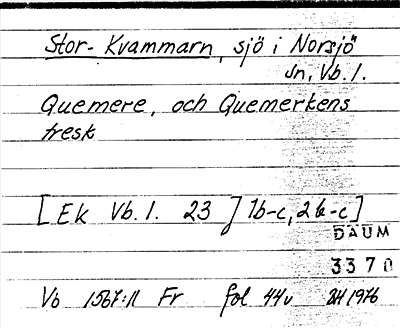 Stor- Kvammarn, sjö i Norsjö
sn, Vb. l.
Quemere, och Quemerkens
tresk
[Ek Vb. l. 23] 1b-c, 2b-c]
DAUM
3370
Vb 1567:11 Fr fol 44v 1976